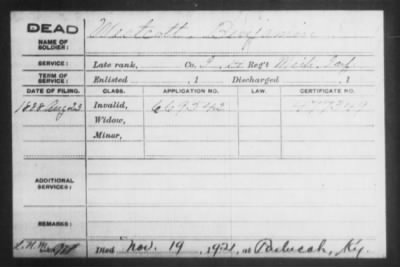 DEAD
NAME OF SOLDIER: Westcott, Benjamin
SERVICE: Late rank, Co. I, Reg't Mich. Inf.
TERM OF SERVICE: Enlisted , 1 Discharged , 1
DATE OF FILING. CLASS. APPLICATION NO. LAW. CERTIFICATE NO.
1888 Aug 23 Invalid, 669542
Widow,
Minor,
ADDITIONAL SERVICES:
REMARKS:
Died Nov. 19, 1921, at Paducah, Ky.